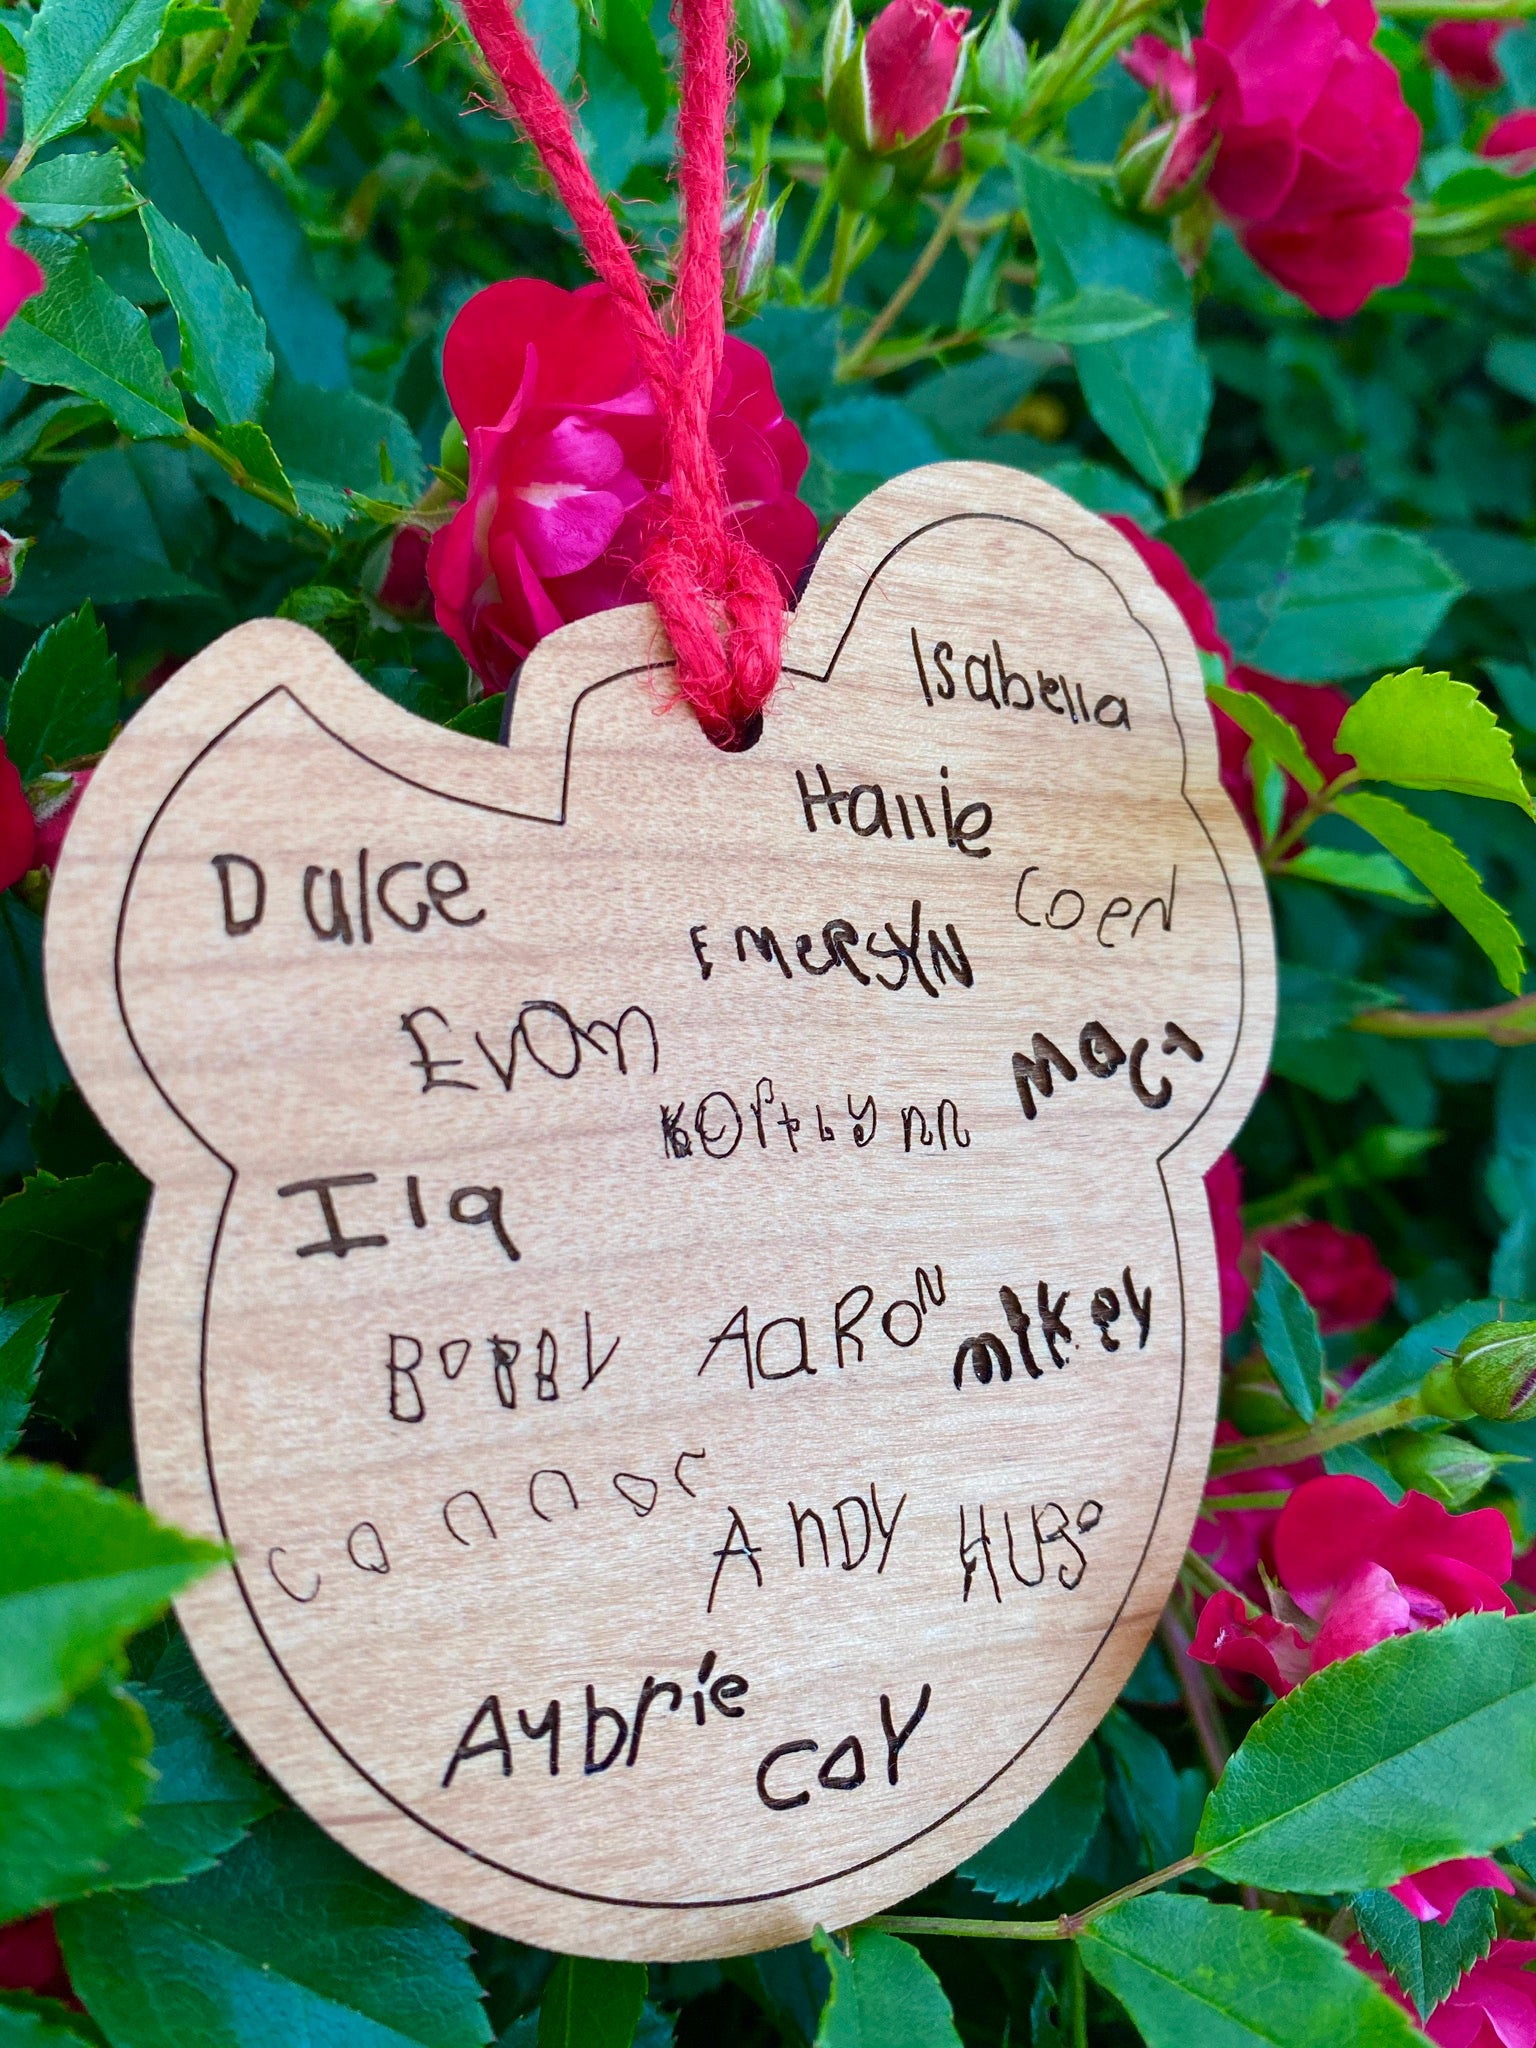 Isabella
Hallie
Dulce
Coen
EMeRSYN
Evan
Maci
KortLynn
Ila
BOBBY AaRON mIkey
connor
AnDY HUGo
Aubrie
CoY